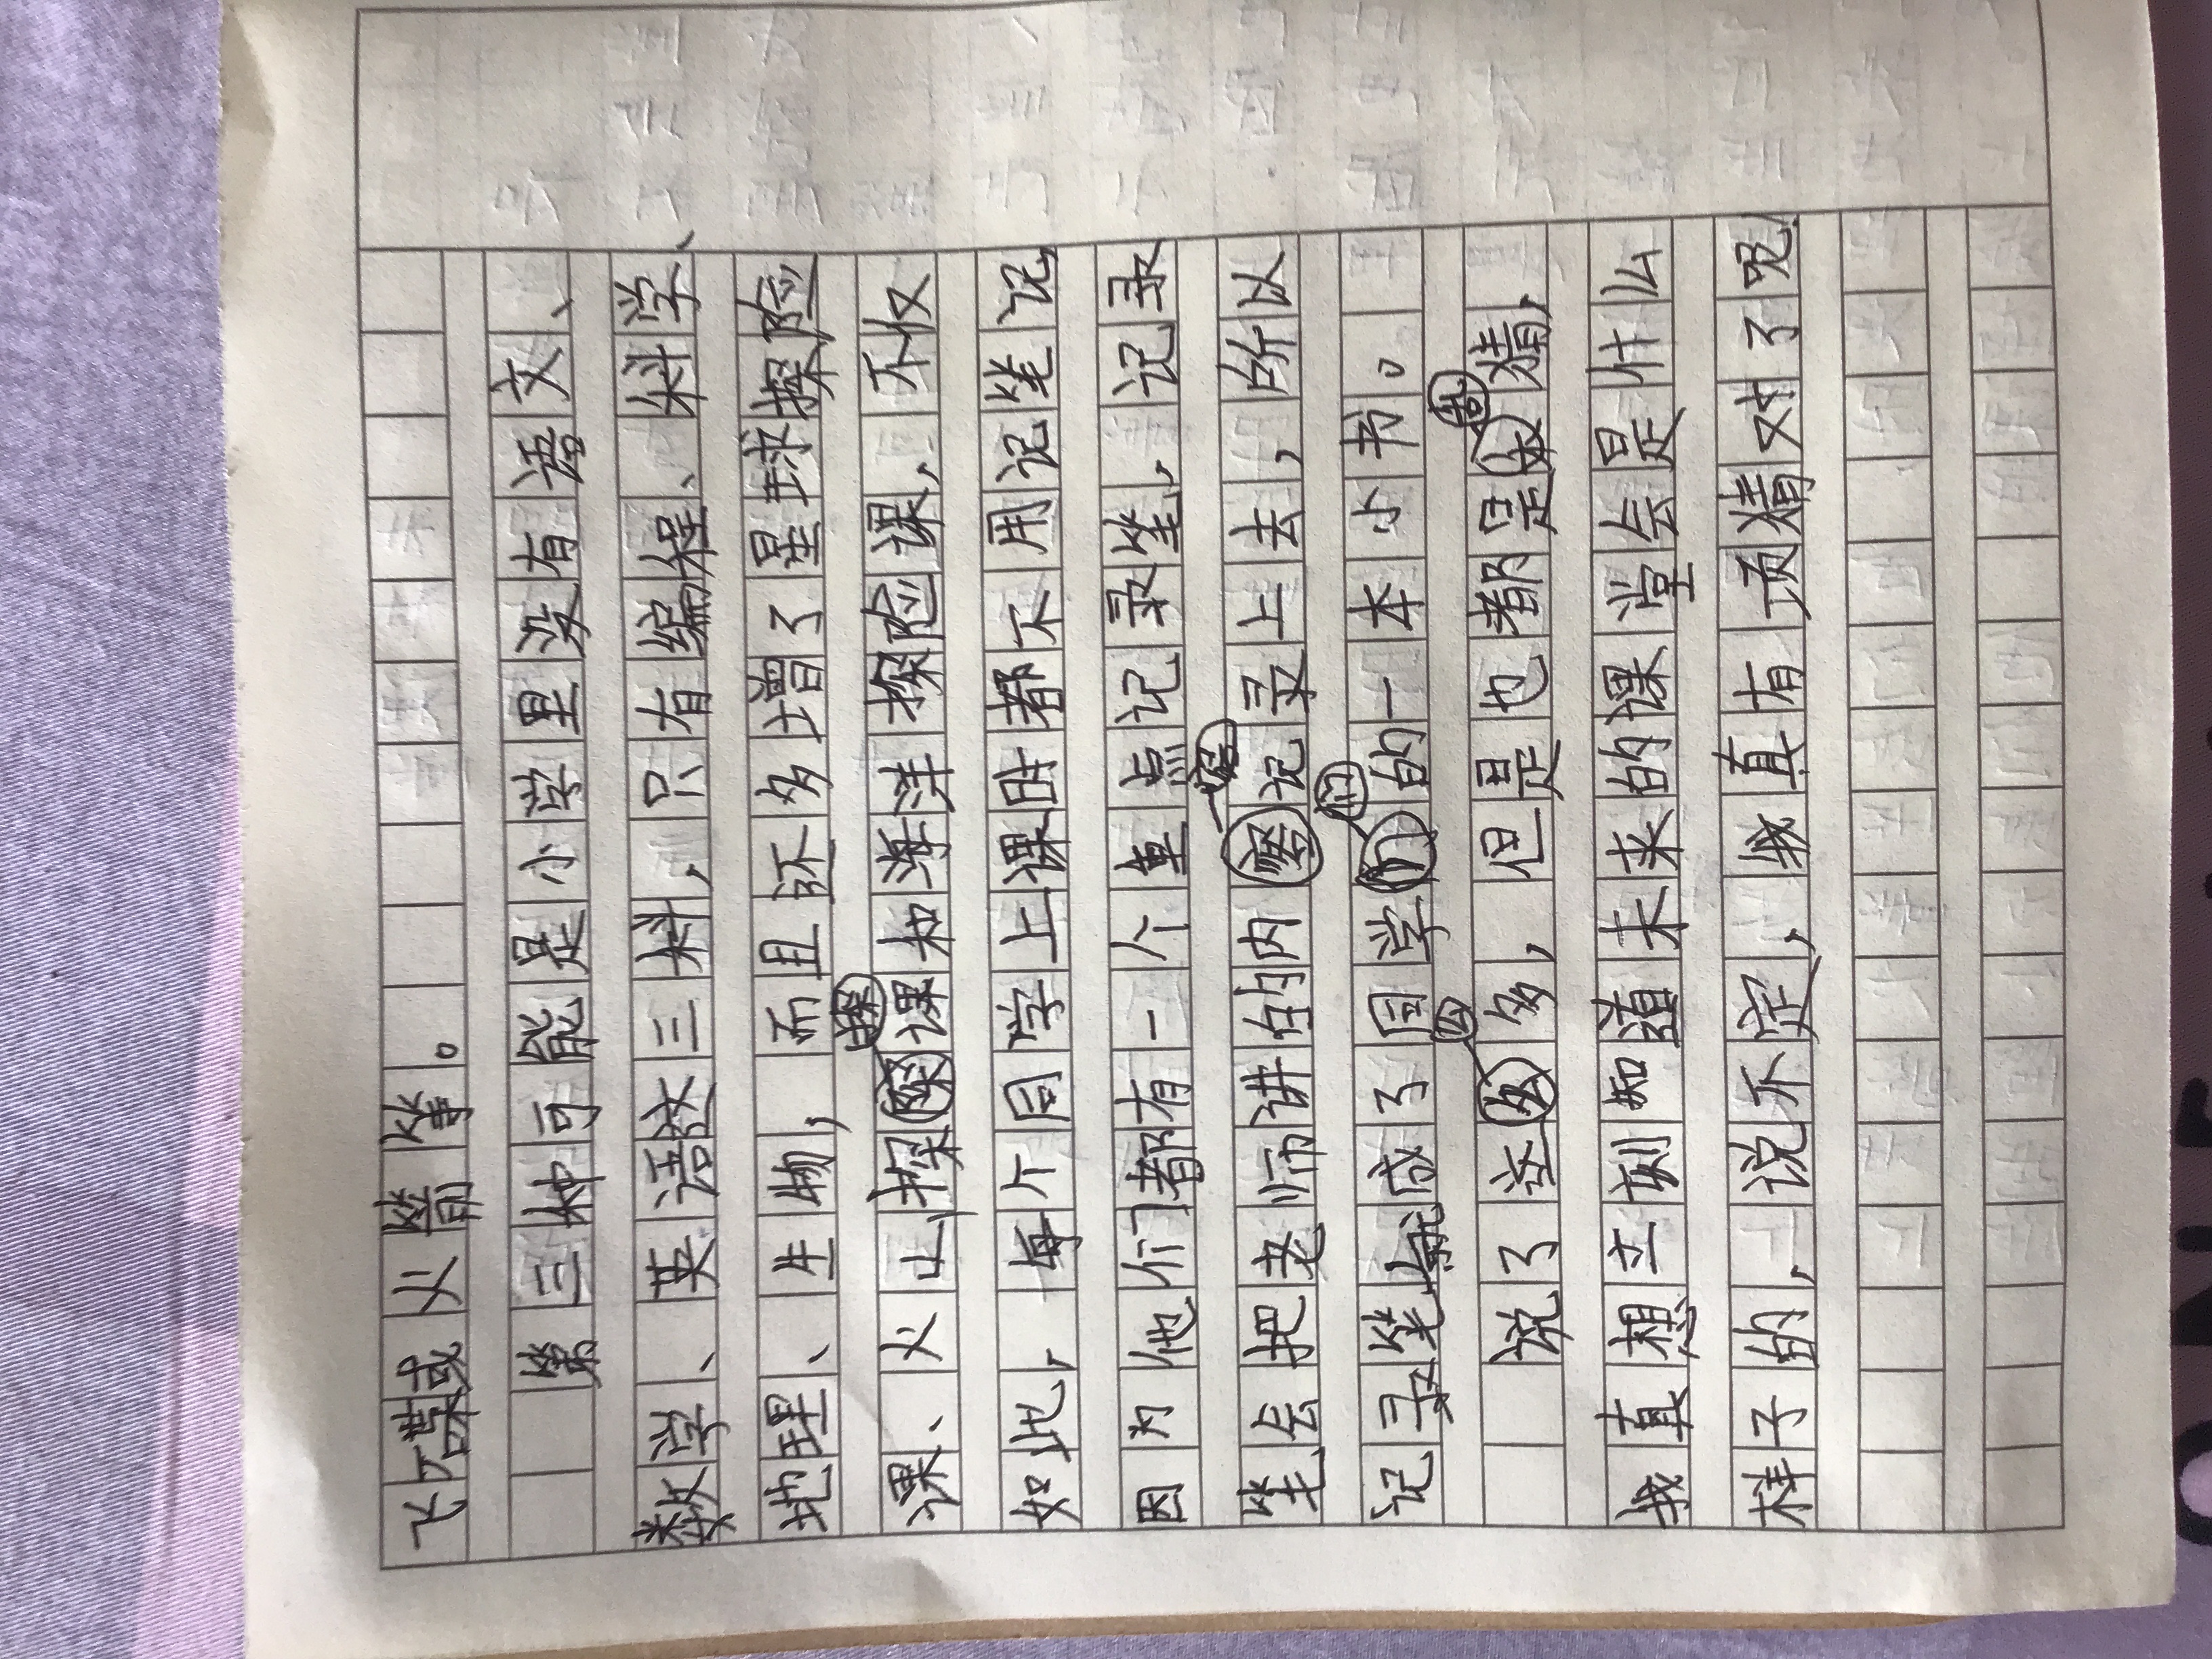 飞碟或火箭等。
第三种可能是小学里没有语文、
数学、英语这三科,只有编程、科学、
地理、生物,而且还多增了星球探险
课、火山探险课和海洋探险课,不仅
如此,每个同学上课时都不用记笔记,
因为他们都有一个重点记录笔,记录
笔会把老师讲的内容记录上去,所以
记录笔就成了同学们的一本小书。
说了这么多,但是也都是猜,
我真想立刻知道未来的课堂会是什么
样子的,说不定,我真有项猜对了呢!